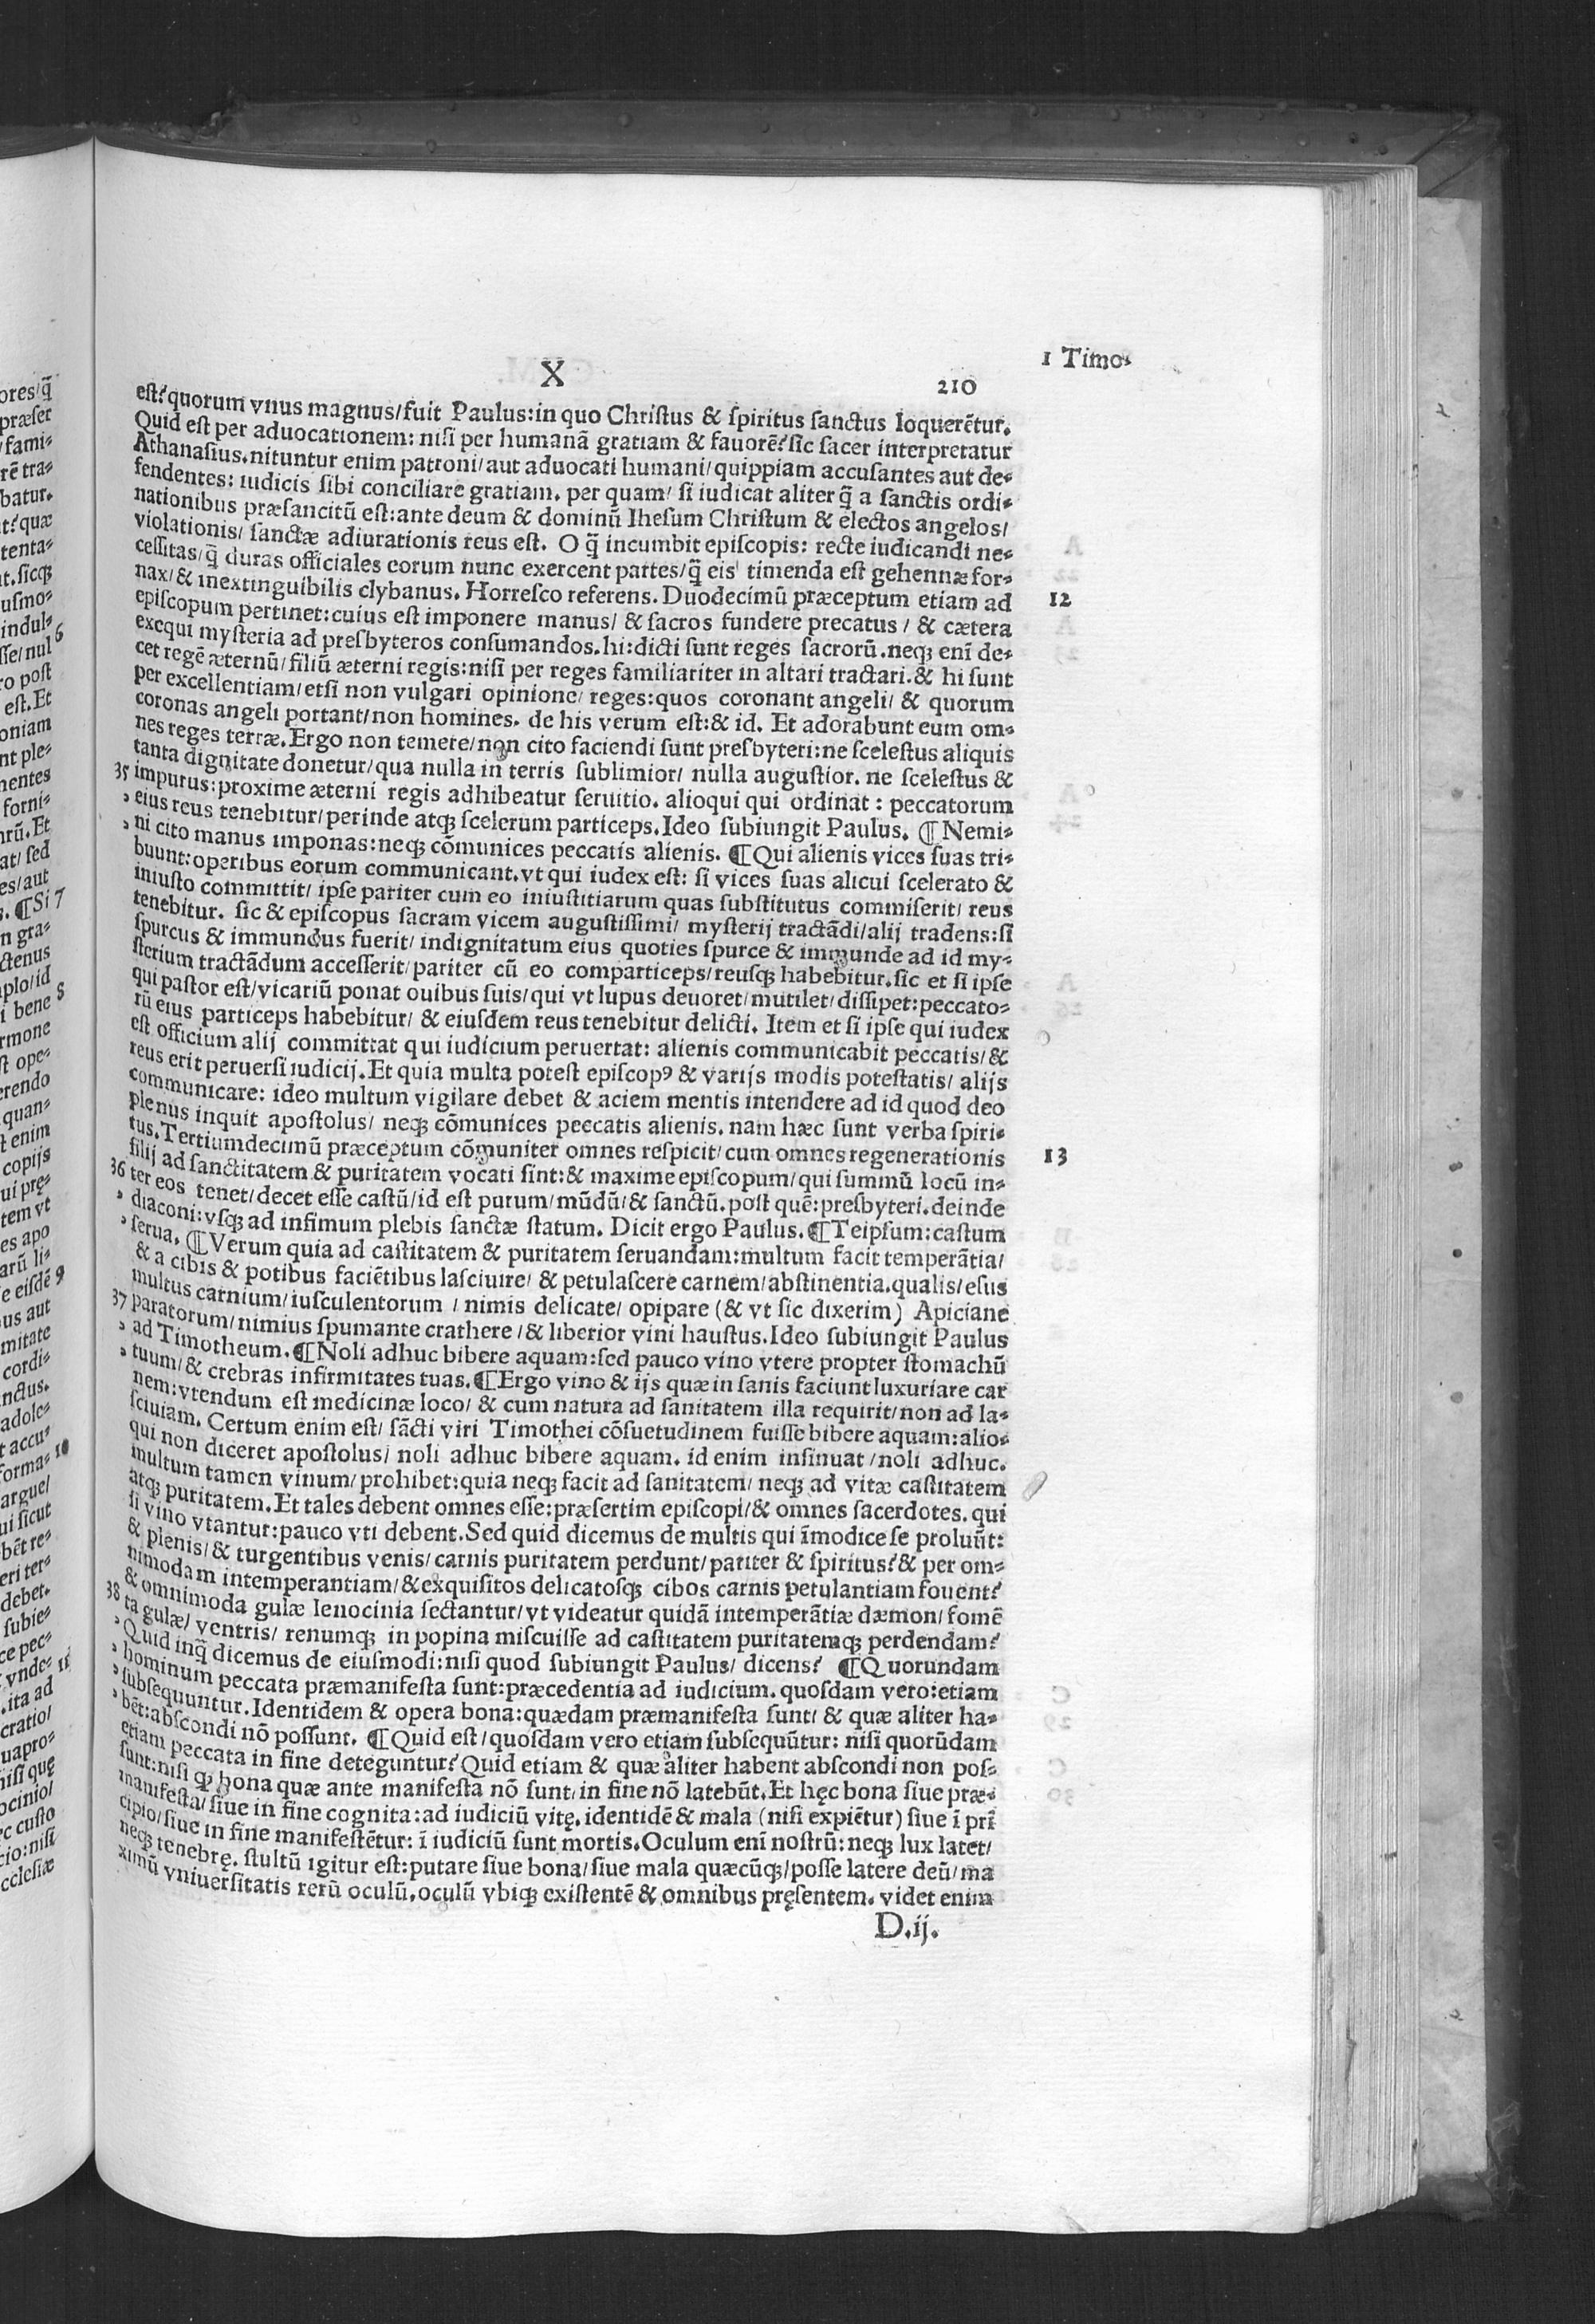 X
210
1 Timo.
est? quorum vnus magnus/fuit Paulus:in quo Christus & spiritus sanctus loquerẽtur.
Quid est per aduocationem: nisi per humanã gratiam & fauorẽ? sic sacer interpretatur
Athanasius.nituntur enim patroni/aut aduocati humani/quippiam accusantes aut de-
fendentes: iudicis sibi conciliare gratiam. per quam/ si iudicat aliter q̃ a sanctis ordi-
nationibus præsancitũ est:ante deum & dominũ Ihesum Christum & electos angelos/
violationis/ sanctæ adiurationis reus est. O q̃ incumbit episcopis: recte iudicandi ne-
cessitas/q̃ duras officiales eorum nunc exercent partes/q̃ eis timenda est gehennæ for-
nax/& inextinguibilis clybanus. Horresco referens. Duodecimũ præceptum etiam ad
12
episcopum pertinet:cuius est imponere manus/ & sacros fundere precatus / & cætera
exequi mysteria ad presbyteros consumandos.hi:dicti sunt reges sacrorũ.neq; enĩ de-
cet regẽ æternũ/filiũ æterni regis:nisi per reges familiariter in altari tractari.& hi sunt
per excellentiam/etsi non vulgari opinione/ reges:quos coronant angeli/ & quorum
coronas angeli portant/non homines. de his verum est:& id. Et adorabunt eum om-
nes reges terræ.Ergo non temere/non cito faciendi sunt presbyteri:ne scelestus aliquis
tanta dignitate donetur/qua nulla in terris sublimior/ nulla augustior. ne scelestus &
35 impurus:proxime æterni regis adhibeatur seruitio. alioqui qui ordinat : peccatorum
eius reus tenebitur/perinde atq; scelerum particeps.Ideo subiungit Paulus. ¶Nemi-
ni cito manus imponas:neq; cõmunices peccatis alienis. ¶Qui alienis vices suas tri-
buunt:operibus eorum communicant.vt qui iudex est: si vices suas alicui scelerato &
iniusto committit/ ipse pariter cum eo iniustitiarum quas substitutus commiserit/ reus
tenebitur. sic & episcopus sacram vicem augustissimi/ mysterij tractãdi/alij tradens:si
spurcus & immundus fuerit/ indignitatum eius quoties spurce & immunde ad id my-
sterium tractãdum accesserit/pariter cũ eo comparticeps/reusq; habebitur.sic et si ipse
qui pastor est/vicariũ ponat ouibus suis/qui vt lupus deuoret/mutilet/dissipet:peccato-
rũ eius particeps habebitur/ & eiusdem reus tenebitur delicti. Item et si ipse qui iudex
est officium alij committat qui iudicium peruertat: alienis communicabit peccatis/&
reus erit peruersi iudicij.Et quia multa potest episcopꝰ & varijs modis potestatis/ alijs
communicare: ideo multum vigilare debet & aciem mentis intendere ad id quod deo
plenus inquit apostolus/ neq; cõmunices peccatis alienis. nam hæc sunt verba spiri-
tus.Tertiumdecimũ præceptum cõmuniter omnes respicit/cum omnes regenerationis
13
filij ad sanctitatem & puritatem vocati sint:& maxime episcopum/qui summũ locũ in-
36 ter eos tenet/decet esse castũ/id est purum/mũdũ/& sanctũ.post quẽ:presbyteri.deinde
diaconi:vsq; ad infimum plebis sanctæ statum. Dicit ergo Paulus.¶Teipsum:castum
serua. ¶Verum quia ad castitatem & puritatem seruandam:multum facit temperãtia/
& a cibis & potibus faciẽtibus lasciuire/ & petulascere carnem/abstinentia.qualis/esus
multus carnium/iusculentorum / nimis delicate/ opipare (& vt sic dixerim) Apiciane
37 paratorum/nimius spumante crathere/& liberior vini haustus.Ideo subiungit Paulus
ad Timotheum.¶Noli adhuc bibere aquam:sed pauco vino vtere propter stomachũ
tuum/& crebras infirmitates tuas.¶Ergo vino & ijs quæ in sanis faciunt luxuriare car
nem:vtendum est medicinæ loco/ & cum natura ad sanitatem illa requirit/non ad la-
sciuiam. Certum enim est/ sãcti viri Timothei cõsuetudinem fuisse bibere aquam:alio-
qui non diceret apostolus/ noli adhuc bibere aquam. id enim insinuat/noli adhuc.
multum tamen vinum/prohibet:quia neq; facit ad sanitatem/ neq; ad vitæ castitatem
atq; puritatem.Et tales debent omnes esse:præsertim episcopi/& omnes sacerdotes. qui
si vino vtantur:pauco vti debent.Sed quid dicemus de multis qui ĩmodice se proluũt:
& plenis/& turgentibus venis/carnis puritatem perdunt/pariter & spiritus?& per om-
nimodam intemperantiam/&exquisitos delicatosq; cibos carnis petulantiam fouent?
& omnimoda gulæ lenocinia sectantur/vt videatur quidã intemperãtiæ dæmon/fomẽ
38 ta gulæ/ ventris/ renumq; in popina miscuisse ad castitatem puritatemq; perdendam?
Quid inq̃ dicemus de eiusmodi:nisi quod subiungit Paulus/ dicens? ¶Quorundam
hominum peccata præmanifesta sunt:præcedentia ad iudicium. quosdam vero:etiam
subsequuntur.Identidem & opera bona:quædam præmanifesta sunt/ & quæ aliter ha-
bẽt:abscondi nõ possunt. ¶Quid est/quosdam vero etiam subsequũtur: nisi quorũdam
etiam peccata in fine deteguntur?Quid etiam & quæ aliter habent abscondi non pos-
sunt:nisi ꝙ bona quæ ante manifesta nõ sunt/in fine nõ latebũt.Et hęc bona siue præ-
manifesta/siue in fine cognita:ad iudiciũ vitę.identidẽ & mala (nisi expiẽtur) siue ĩ pri
cipio/siue in fine manifestẽtur: ĩ iudiciũ sunt mortis.Oculum enĩ nostrũ:neq; lux latet/
neq; tenebrę. stultũ igitur est:putare siue bona/siue mala quæcũq;/posse latere deũ/ma
ximũ vniuersitatis rerũ oculũ.oculũ vbiq; existentẽ & omnibus pręsentem. videt enim
D.ij.